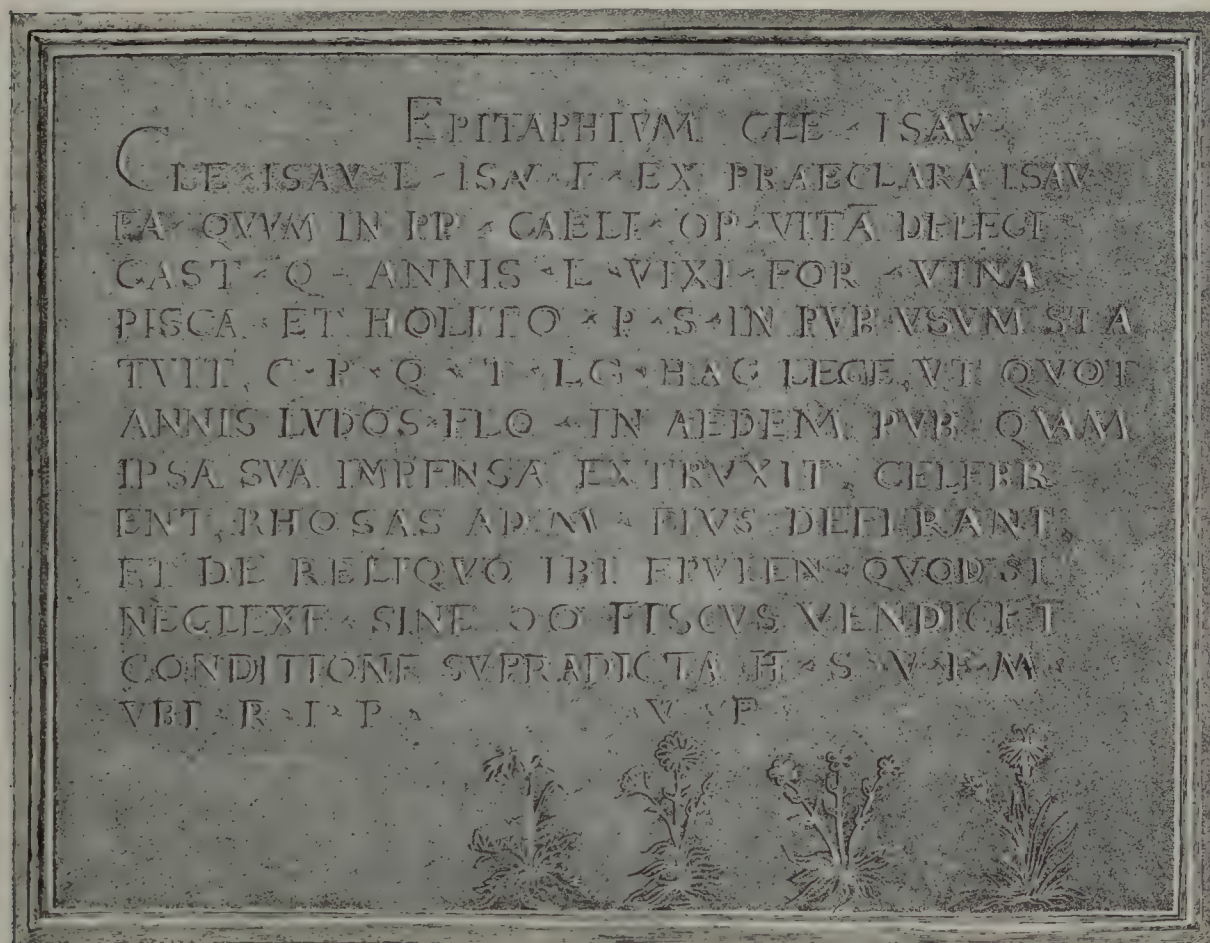 EPITAPHIVM CLE · ISAV
CLE · ISAV · L · ISAV · F · EX PRAECLARA ISAV
FA · QVVM IN PP · CAELI · OP · VITĀ DELEGI
CAST · Q · ANNIS · L · VIXI · FOR · VINA
PISCA · ET HOLITO · P · S · IN PVB · VSVM STA
TVIT, C · P · Q · T · LG · HAC LEGE, VT QVOT
ANNIS LVDOS · FLO · IN AEDEM PVB · QVAM
IPSA SVA IMPENSA EXTRVXIT, CELEBR
ENT, RHOSAS AD M · EIVS DEFERANT,
ET DE RELIQVO IBI EPVLEN · QVOD SI
NEGLEXE · SINE ƆO FISCVS VENDICET
CONDITIONE SVPRADICTA H · S · V · F · M ·
VBI · R · I · P · V · F ·